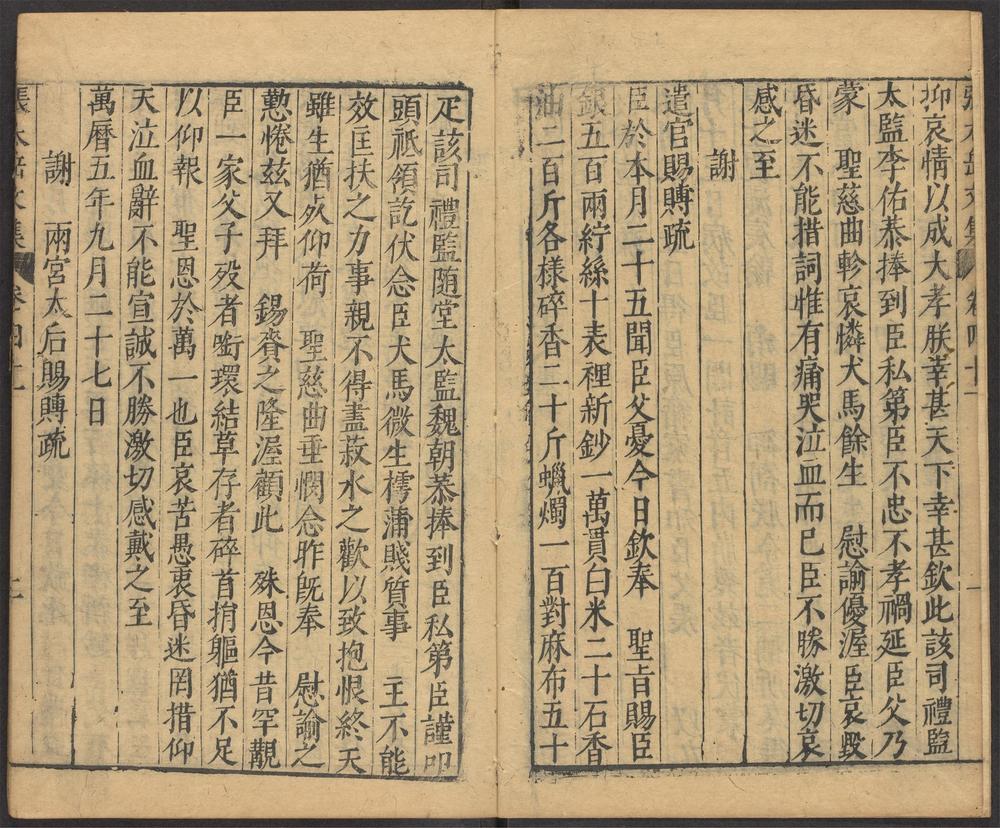 張太岳文集 卷四十一
抑哀情以成大孝朕幸甚天下幸甚欽此該司禮監
太監李佑恭捧到臣私第臣不忠不孝禍延臣父乃
蒙 聖慈曲軫哀憐犬馬餘生 慰諭優渥臣哀毀
昏迷不能措詞惟有痛哭泣血而已臣不勝激切哀
感之至
謝
遣官賜賻疏
臣於本月二十五聞臣父憂今日欽奉 聖旨賜臣
銀五百兩紵絲十表裡新鈔一萬貫白米二十石香
油二百斤各樣碎香二十斤蠟燭一百對麻布五十
疋該司禮監随堂太監魏朝恭捧到臣私第臣謹叩
頭祇領訖伏念臣犬馬微生樗蒲賤質事 主不能
效匡扶之力事親不得盡菽水之歡以致抱恨終天
雖生猶死仰荷 聖慈曲垂憫念昨旣奉 慰諭之
懃惓玆又拜 錫賚之隆渥顧此 殊恩今昔罕覯
臣一家父子歿者啣環結草存者碎首捐軀猶不足
以仰報 聖恩於萬一也臣哀苦愚衷昏迷罔措仰
天泣血辭不能宣誠不勝激切感戴之至
萬曆五年九月二十七日
謝 兩宮太后賜賻疏
張太岳文集 卷四十一 二